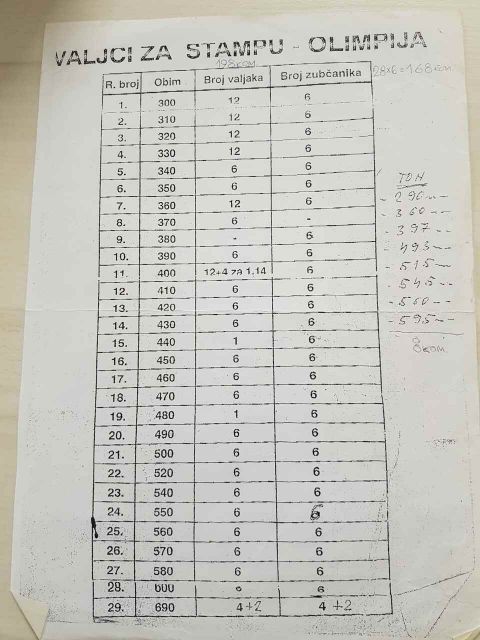 VALJCI ZA STAMPU - OLIMPIJA
198 KOM
R. broj Obim Broj valjaka Broj zubčanika 28x6=168 KOM
1. 300 12 6
2. 310 12 6
3. 320 12 6
4. 330 12 6
5. 340 6 6
6. 350 6 6
7. 360 12 6
8. 370 6 -
9. 380 - 6
10. 390 6 6
11. 400 12+4 za 1,14 6
12. 410 6 6
13. 420 6 6
14. 430 6 6
15. 440 1 6
16. 450 6 6
17. 460 6 6
18. 470 6 6
19. 480 1 6
20. 490 6 6
21. 500 6 6
22. 520 6 6
23. 540 6 6
24. 550 6 6
25. 560 6 6
26. 570 6 6
27. 580 6 6
28. 600 6 6
29. 690 4+2 4+2
TOH
- 296 --
- 360 --
- 397 --
- 493 --
- 515 --
- 545 --
- 560 --
- 595 --
8 KOM